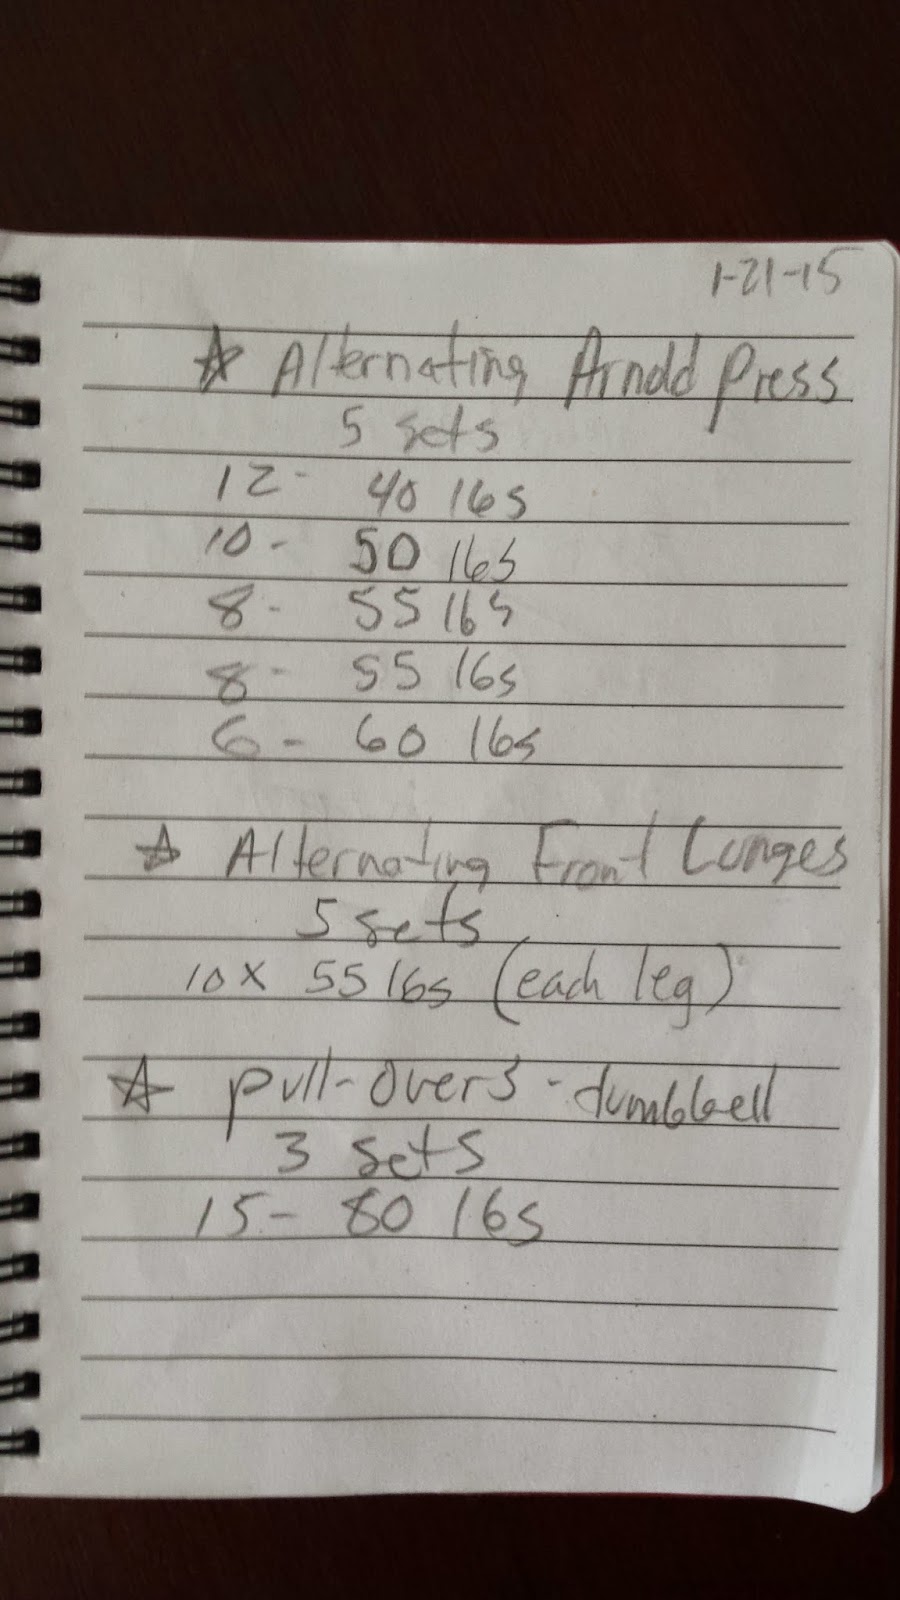 1-21-15
☆ Alternating Arnold Press
5 sets
12- 40 lbs
10- 50 lbs
8- 55 lbs
8- 55 lbs
6- 60 lbs
☆ Alternating Front Lunges
5 sets
10x 55 lbs (each leg)
☆ pull-overs - dumbbell
3 sets
15- 80 lbs